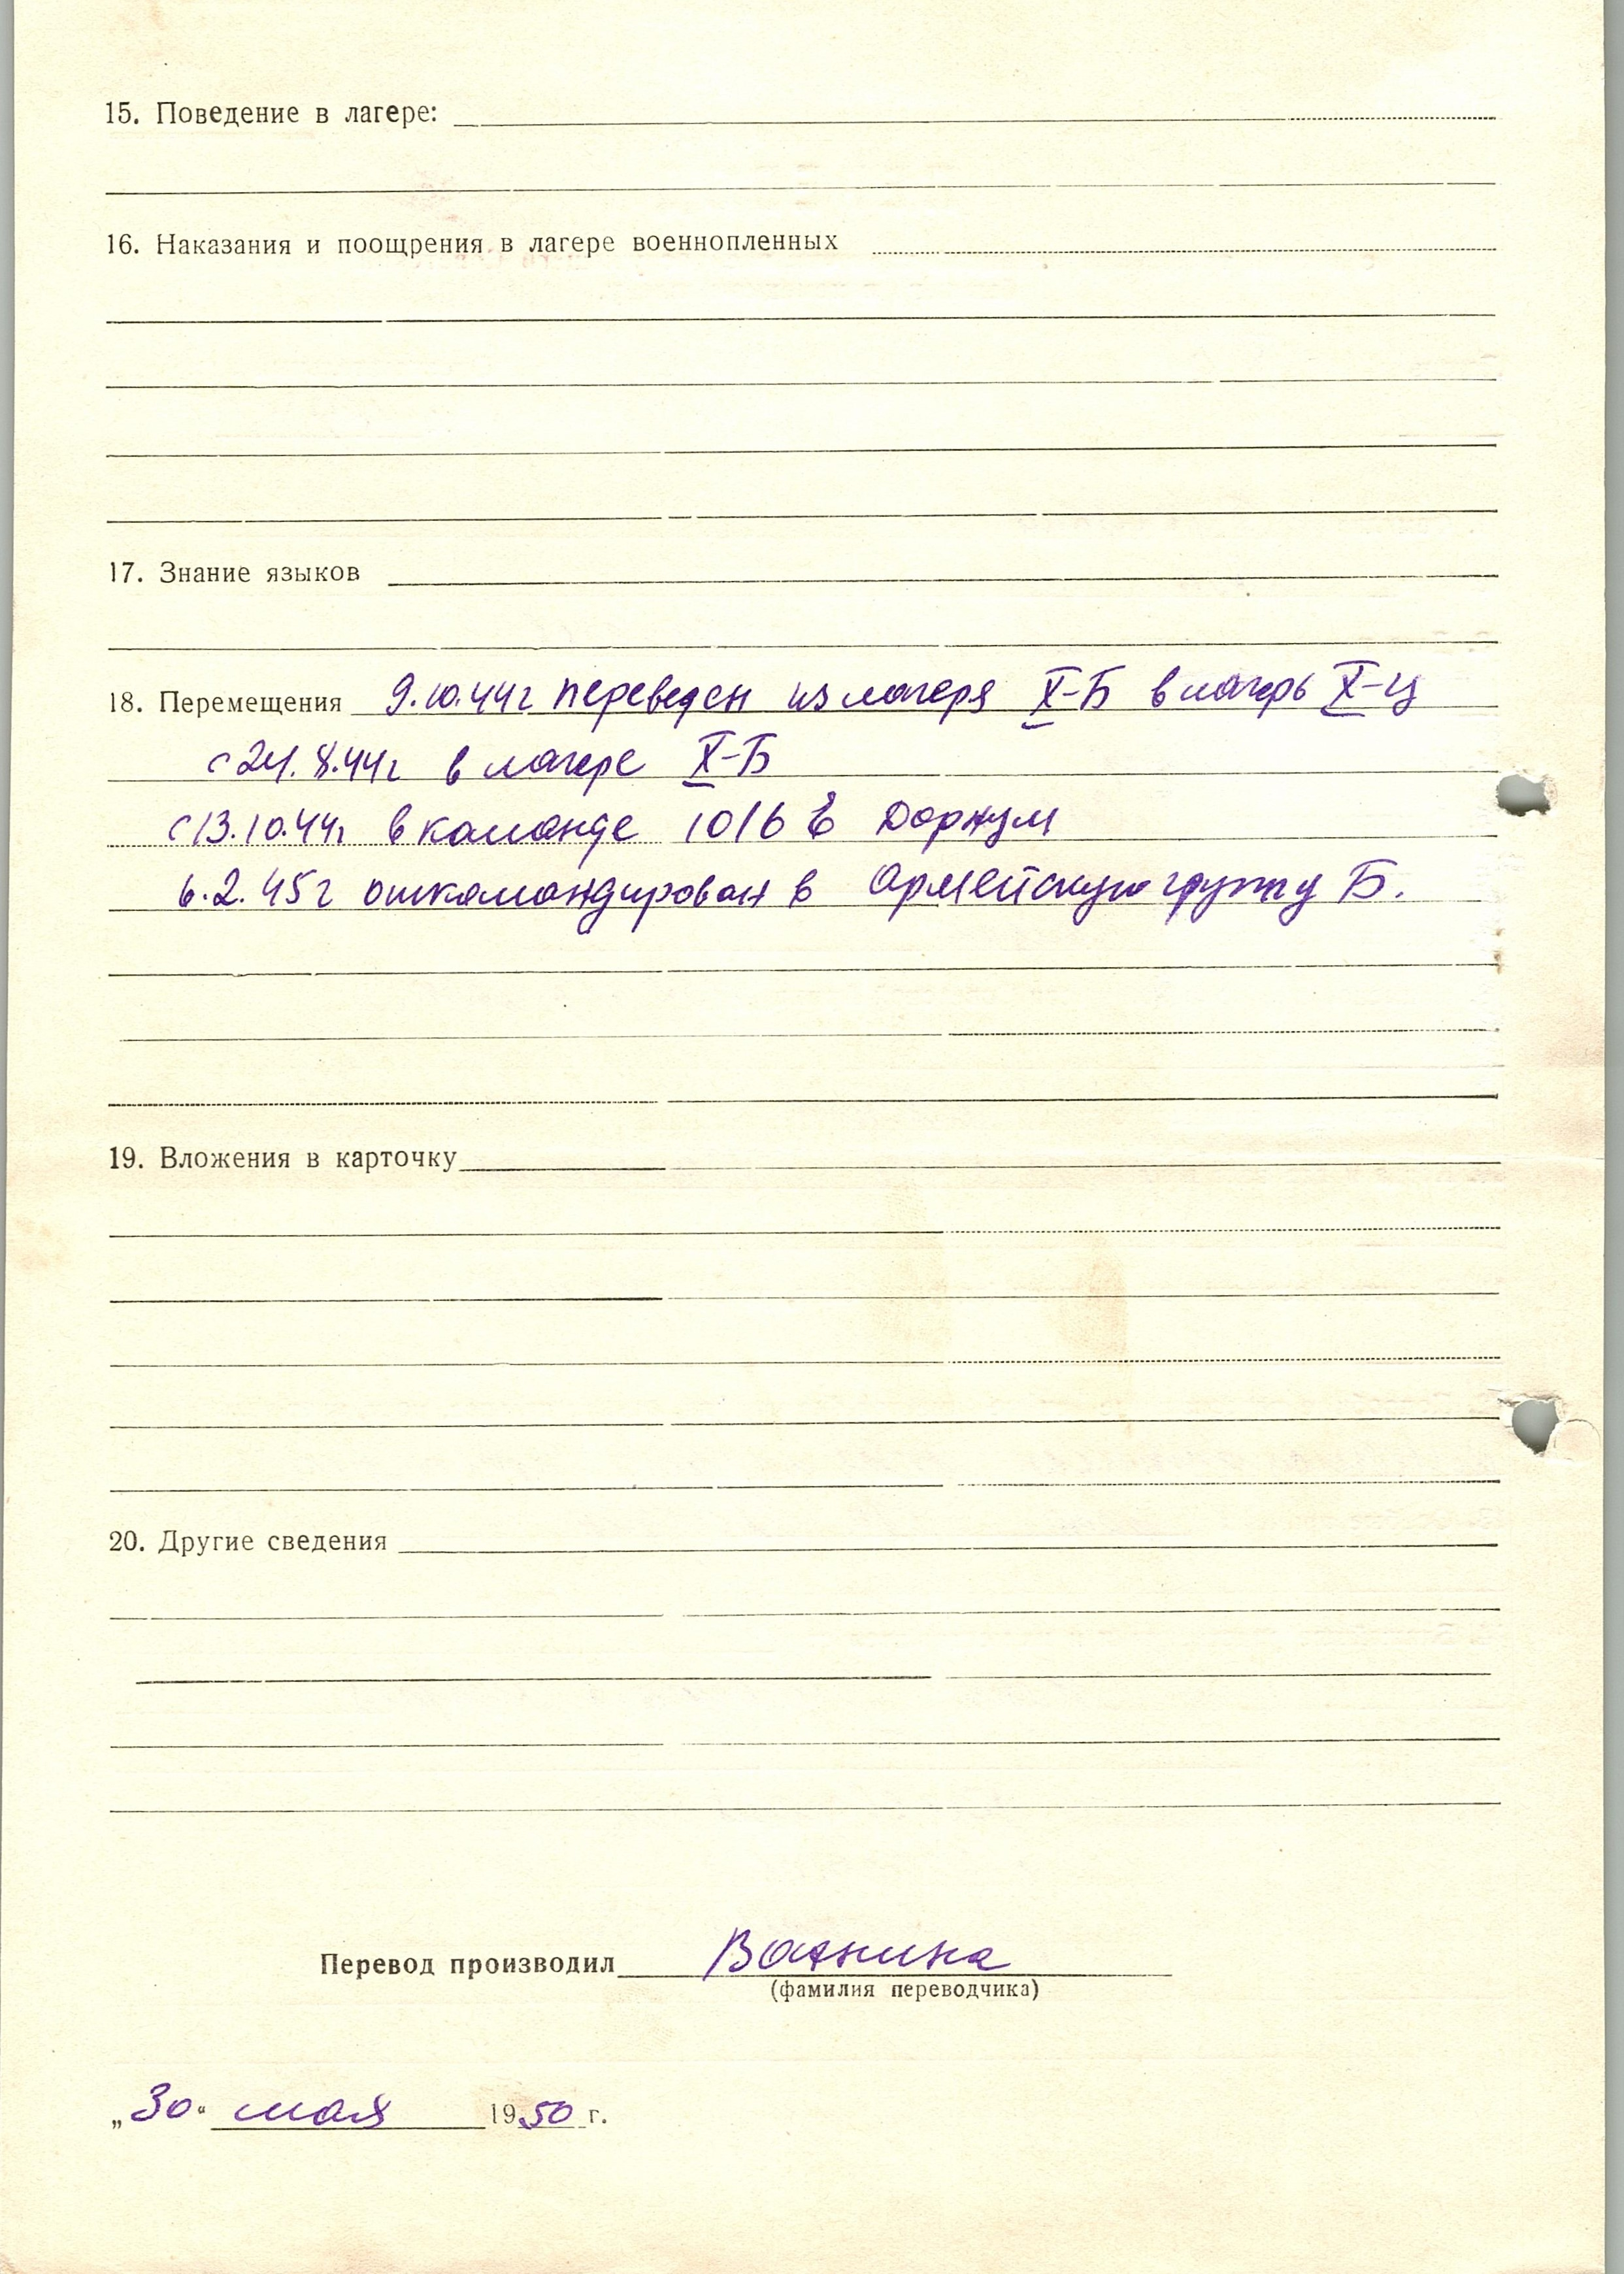 15. Поведение в лагере:
16. Наказания и поощрения в лагере военнопленных
17. Знание языков
18. Перемещения 9.10.44г переведен из лагеря X-Б в лагерь X-Ц
с 24.8.44г в лагере X-Б
с 13.10.44г в команде 1016 в Доржум
6.2.45г откомандирован в Армейскую группу Б.
19. Вложения в карточку
20. Другие сведения
Перевод производил
(фамилия переводчика)
„30“ мая 1950 г.